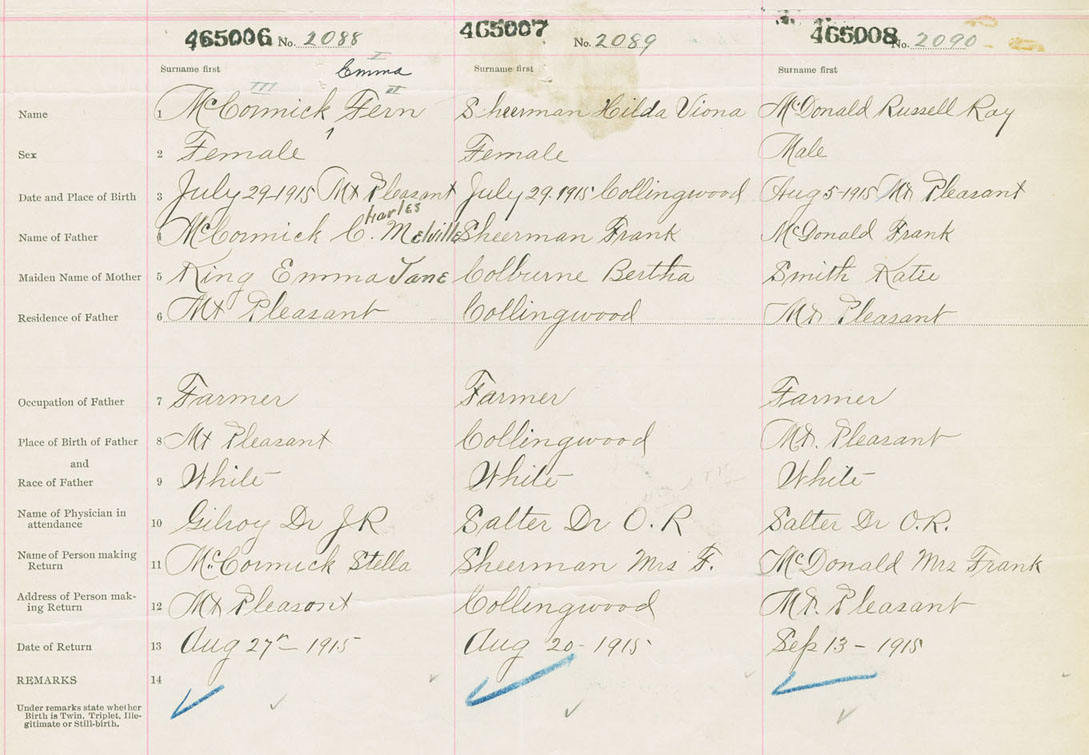 465006 No. 2088 465007 No. 2089 465008 No. 2090
I
Surname first Emma Surname first Surname first
III II
Name 1 McCormick Fern Sheerman Hilda Viona McDonald Russell Ray
Sex 2 Female Female Male
Date and Place of Birth 3 July 29-1915 Mt Pleasant July 29.1915 Collingwood Aug 5-1915 Mt Pleasant
harles
Name of Father 4 McCormick C. Melville Sheerman Frank McDonald Frank
Maiden Name of Mother 5 King Emma Jane Colburne Bertha Smith Katie
Residence of Father 6 Mt Pleasant Collingwood Mt. Pleasant
Occupation of Father 7 Farmer Farmer Farmer
Place of Birth of Father 8 Mt Pleasant Collingwood Mt. Pleasant
and
Race of Father 9 White White White
Name of Physician in
attendance 10 Gilroy Dr J R Salter Dr O. R Salter Dr O.R.
Name of Person making
Return 11 McCormick Stella Sheerman Mrs F. McDonald Mrs Frank
Address of Person mak-
ing Return 12 Mt Pleasant Collingwood Mt. Pleasant
Date of Return 13 Aug 27 - 1915 Aug 20 - 1915 Sep 13 - 1915
REMARKS 14
Under remarks state whether
Birth is Twin, Triplet, Ille-
gitimate or Still-birth.